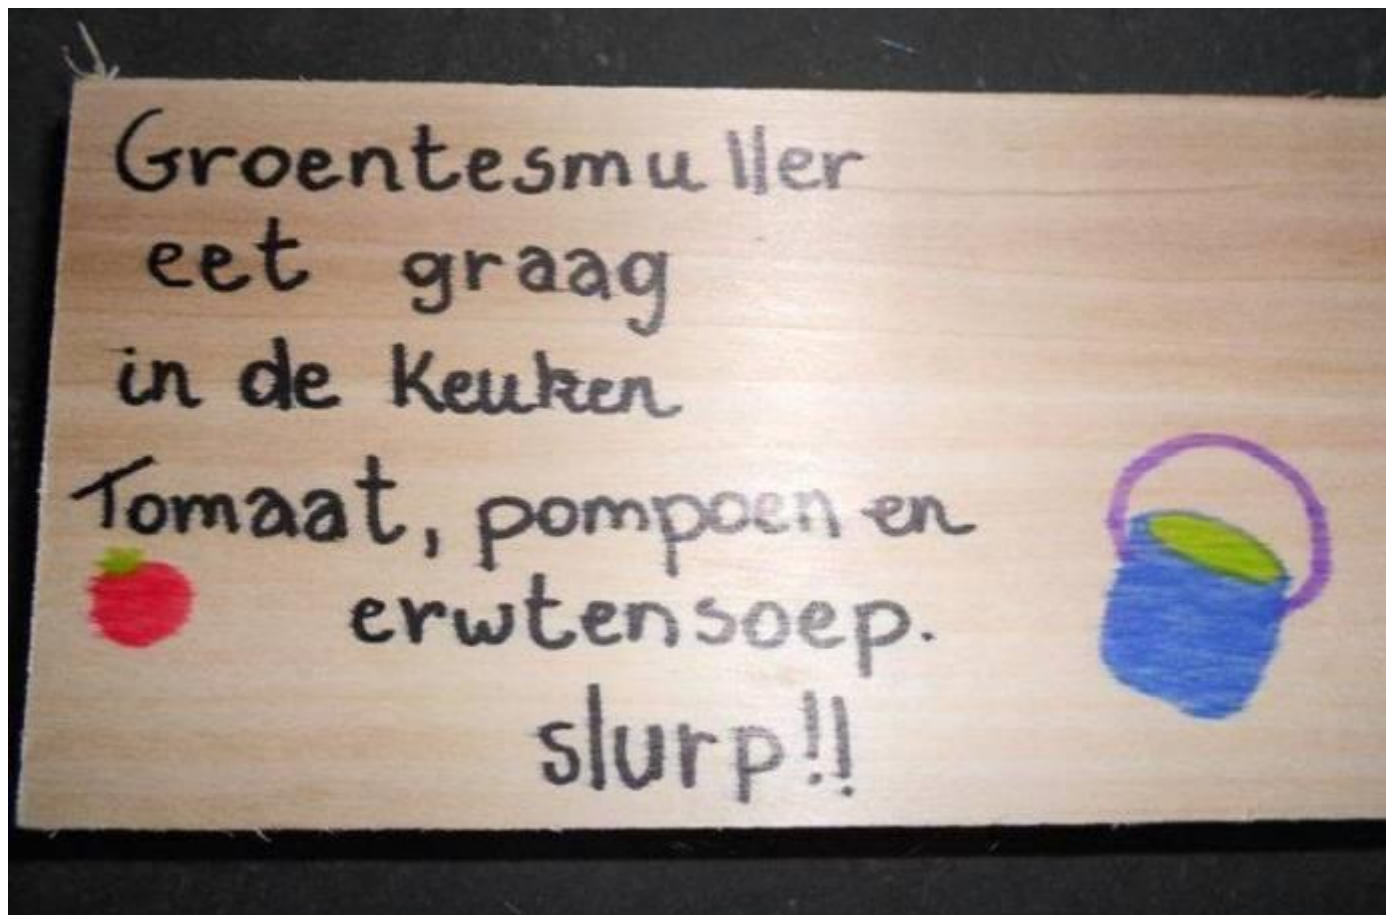 Groentesmuller
eet graag
in de keuken
Tomaat, pompoen en
erwtensoep.
slurp!!